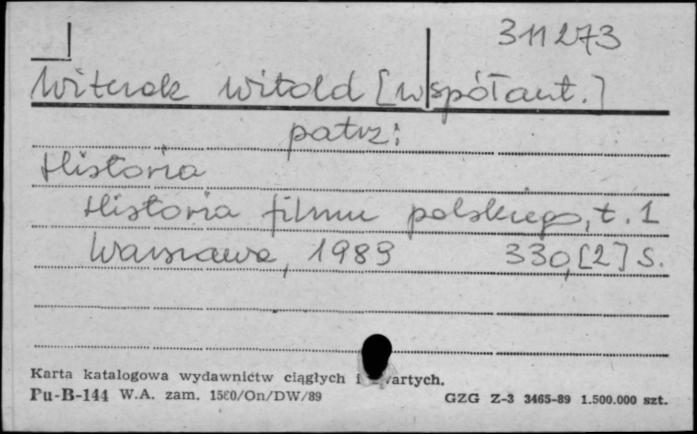 311273
Witerak Witold [współaut.]
patrz:
Historia
Historia filmu polskiego, t. 1
Warszawa, 1989 330,[2] s.
Karta katalogowa wydawnictw ciągłych i
Pu-B-144 W.A. zam. 1580/On/DW/89 GZG Z-3 3465-89 1.500.000 szt.